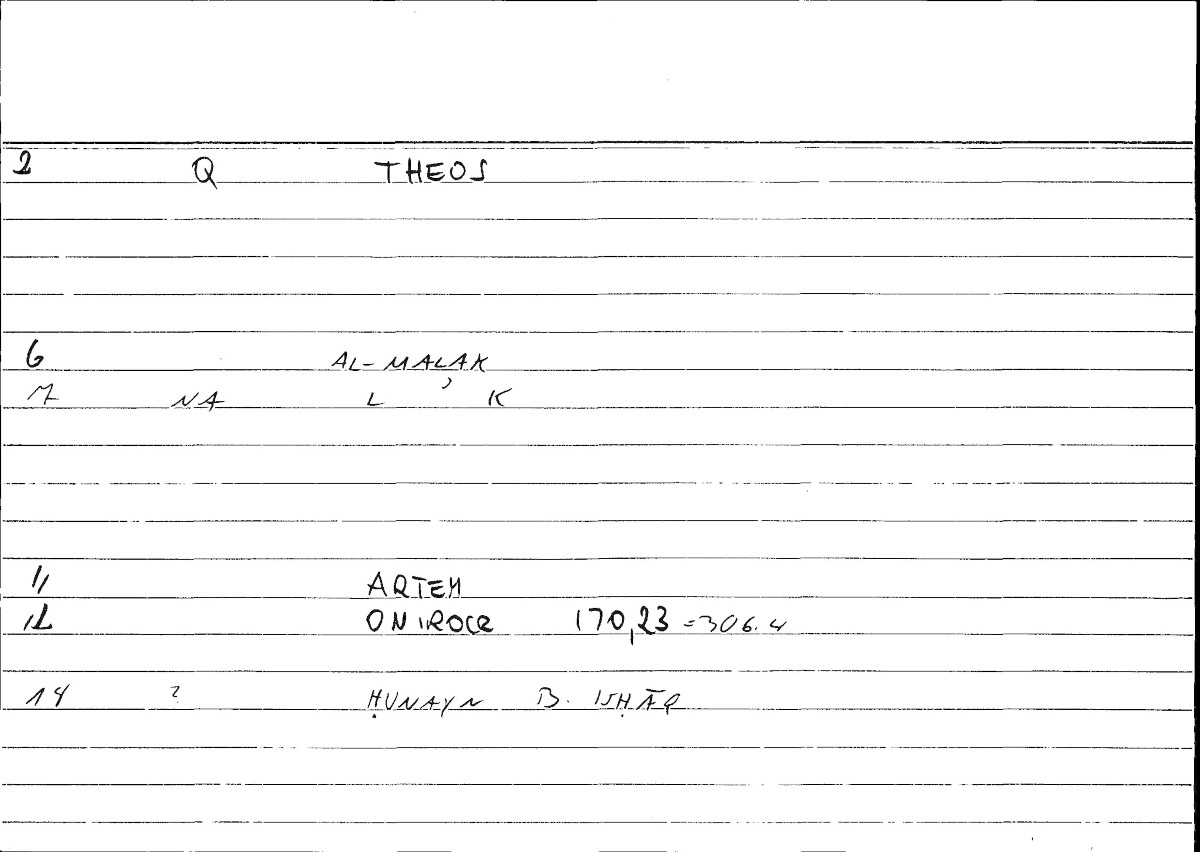 2 Q THEOS
6 AL-MALAK
7 NA L ʾ K
11 ARTEM
12 ONIROCR 170,23 =306.4
14 ? ḤUNAYN B. ISḤĀQ